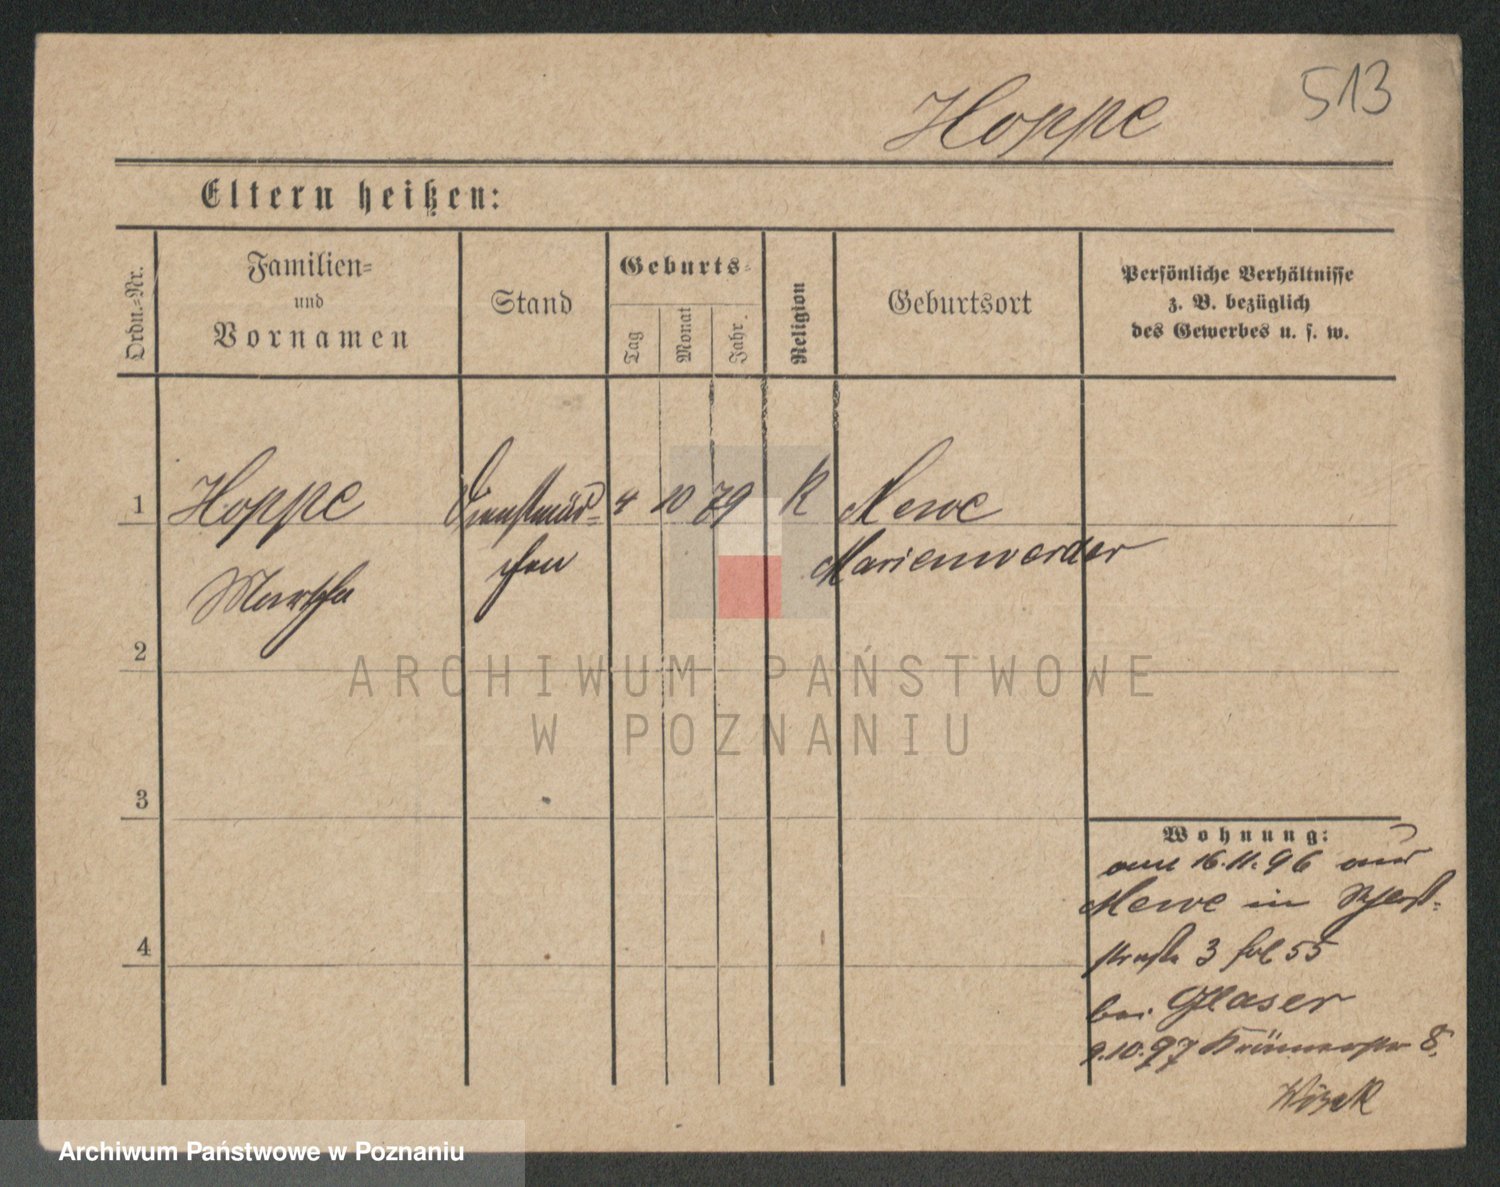 513
Hoppe
Eltern heißen:
Ordn.-Nr.
Familien-
und
Vornamen
Stand
Geburts-
Tag
Monat
Jahr.
Religion
Geburtsort
Persönliche Verhältnisse
z. B. bezüglich
des Gewerbes u. s. w.
1
Hoppe
Dienstmäd-
4
10
79
K
Mewe
chen
Marienwerder
Martha
2
ARCHIWUM PAŃSTWOWE
W POZNANIU
3
4
Wohnung:
am 16.11.96 aus
Mewe in
straße 3 55
bei Glaser
9.10.97 Krämerstr 8.
Archiwum Państwowe w Poznaniu